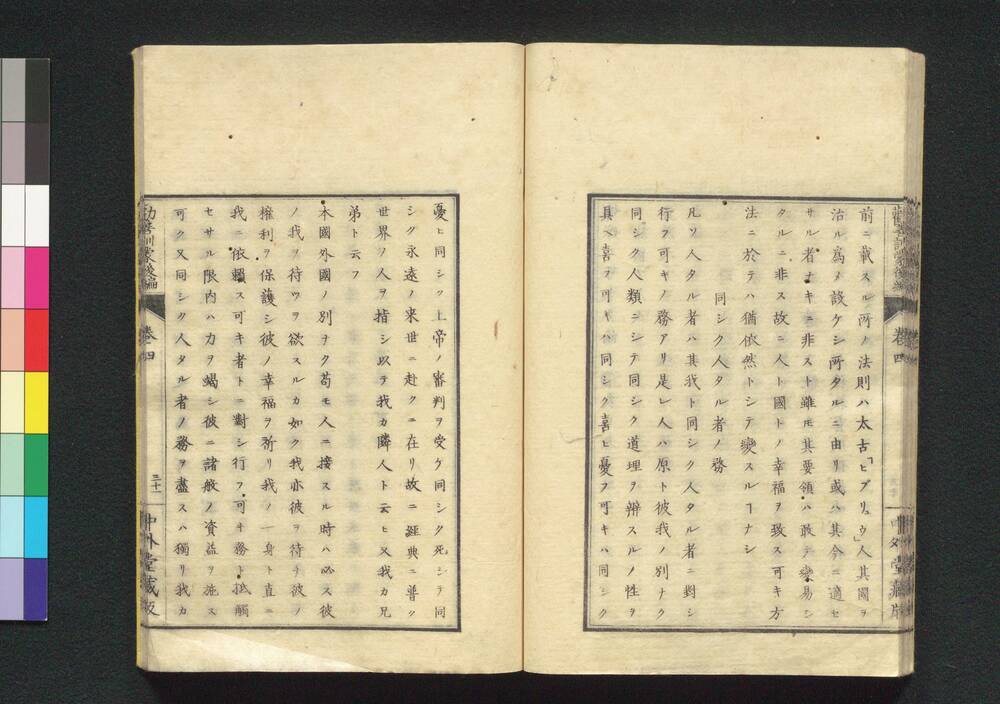 前ニ載スル所ノ法則ハ太古「ヒブリュウ」人其國ヲ
治ル爲メ設ケシ所タルニ由リ或ハ其今ニ適セ
サル者ナキニ非スト雖モ其要領ハ敢テ變易シ
タルニ非ス故ニ人ト國トノ幸福ヲ致ス可キ方
法ニ於テハ猶依然トシテ變スルヿナシ
同シク人タル者ノ務
凡ソ人タル者ハ其我ト同シク人タル者ニ對シ
行フ可キノ務アリ是レ人ハ原ト彼我ノ別ナク
同シク人類ニシテ同シク道理ヲ辨スルノ性ヲ
具ヘ喜フ可キハ同シク喜ヒ憂フ可キハ同シク
憂ヒ同シク上帝ノ審判ヲ受ケ同シク死シテ同
シク永遠ノ來世ニ赴クニ在リ故ニ經典ニ普ク
世界ノ人ヲ指シ以テ我カ隣人ト云ヒ又我カ兄
弟ト云フ
本國外國ノ別ヲク苟モ人ニ接スル時ハ必ス彼
ノ我ヲ待ツヲ欲スルカ如ク我亦彼ヲ待チ彼ノ
權利ヲ保護シ彼ノ幸福ヲ祈リ我ノ一身ト直ニ
我ニ依賴ス可キ者トニ對シ行フ可キ務ト抵觸
セサル限内ハ力ヲ竭シ彼ニ諸般ノ資益ヲ施ス
可ク又同シク人タル者ノ務ヲ盡スハ獨リ我カ
勸善訓蒙後編
卷四
三十一
中外堂藏版